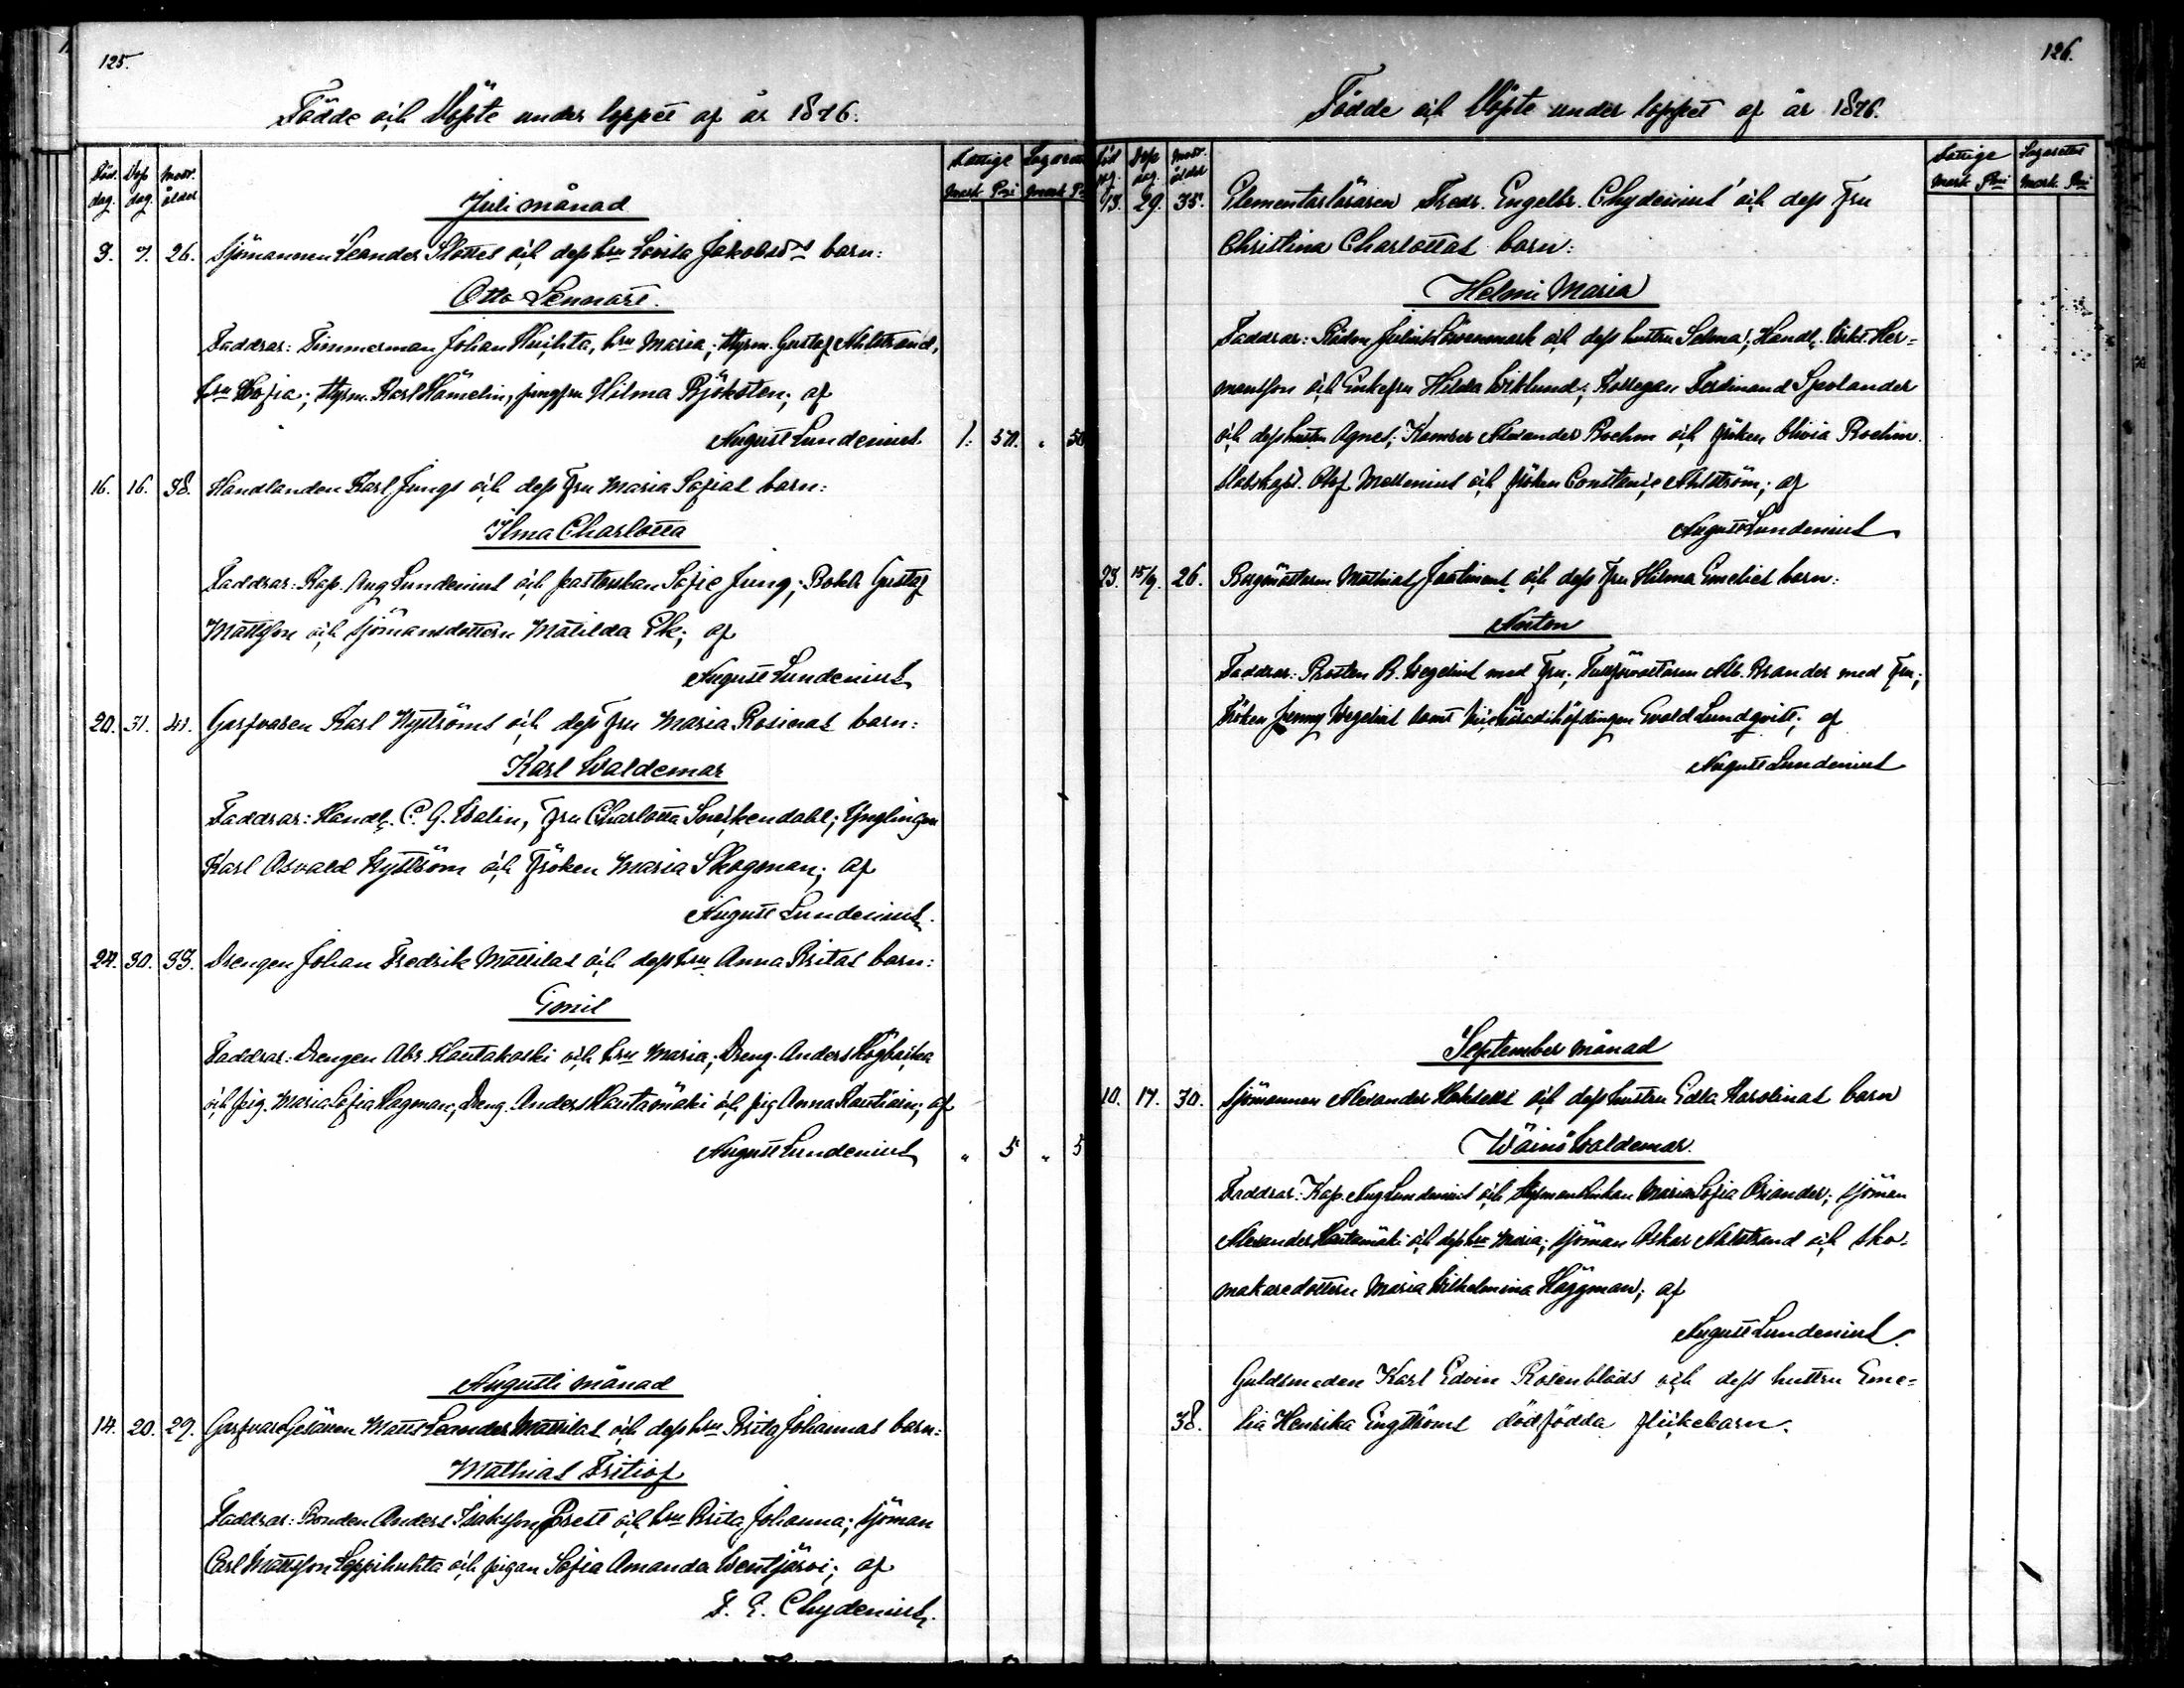 125.
Födde och Döpte under loppet af år 1876.
Föd. dag. Döp dag. Modr. ålder
Fattige Lazaret
mark Pni mark P
Juli månad
3. 7. 26. Sjömannen Leander Slottes och dess hru Lovisa Jakobsdrs barn:
Otto Lennart.
Faddrar: Timmerman Johan Huhta, hru Maria; Styrm. Gustaf Ahlstrand,
hru Sofia; Styrm. Karl Hämelin, jungfru Hilma Björksten; af
August Lundenius. 1. 50. " 50
16. 16. 38. Handlanden Karl Jungs och dess Fru Maria Sofias barn:
Ilma Charlotta
Faddrar: Kap. Aug Lundenius och pastorskan Sofie Jung; Bokh Gustaf
Mattsson och sjömansdottern Matilda Ek; af
August Lundenius
20. 31. 41. Garfvaren Karl Nyströms och dess Fru Maria Rosinas barn:
Karl Waldemar
Faddrar: Handl. C. G. Walin, Fru Charlotta Sneckendahl; Ynglingen
Karl Oswald Nyström och Fröken Maria Skogman; af
August Lundenius.
24. 30. 33. Drengen Johan Fredrik Mattilas och dess hru Anna Britas barn:
Emil
Faddrar: Drengen Abr. Hautakoski och hru Maria; Dreng. Anders Högbacka
och pig. Maria Sofia Hagman; Dreng. Anders Hautamäki och pig Anna; af
August Lundenius " 5 " 5
Augusti månad
14. 20. 29. Garfvare Gesällen Matts Leander Mattilas och dess hru Brita Johannas barn:
Mathias Fritiof
Faddrar: Bonden Anders Isaksson Prest och hru Brita Johanna; Sjöman
Carl Mattsson och pigan Sofia Amanda Wentjärvi; af
F. E. Chydenius.
126.
Födde och Döpte under loppet af år 1876.
Föd dag. Döp dag. Modr. ålder
Fattige Lazarettet
mark Pni mark Pni
13. 29. 35. Elementarläraren Fredr. Engelbr. Chydenius' och dess Fru
Christina Charlottas barn:
Helmi Maria
Faddrar: Rådm Julius Löwenmark och dess hustru Selma; Handl. Vikt. Her-
mansson och Enkefru Hilda Wiklund; Kollegan Ferdinand Sjeolander
och dess hustru Agnes; Kamrer Alexander Boehm och fröken Olivia Boehm.
Stabskapt. Olof Mollenius och fröken Constance Ahlström; af
August Lundenius
23. 15/9. 26. Borgmästaren Mathias Jaatinens och dess Fru Hilma Emelies barn:
Anton
Faddrar: Prosten R. Wegelius med Fru; Tullförvaltaren Alb. Brander med Fru;
Fröken Jenny Wegelius samt Vicehäradshöfdingen Evald Lundqvist; af
August Lundenius
September månad
10. 17. 30. Sjömannen Alexander och dess hustru Edla Karolinas barn
Wäinö Waldemar.
Faddrar: Kap. Aug Lundenius och Maria Sofia Osiander; sjöman
Alexander Hautamäki och dess hru Maria; Sjöman Oskar Ahlstrand och Sko-
makaredottern Maria Wilhelmina Häggman; af
August Lundenius.
Guldsmeden Karl Edvin Rosenblads och dess hustru Eme-
38. lia Henrika Engströms dödfödda flickebarn.